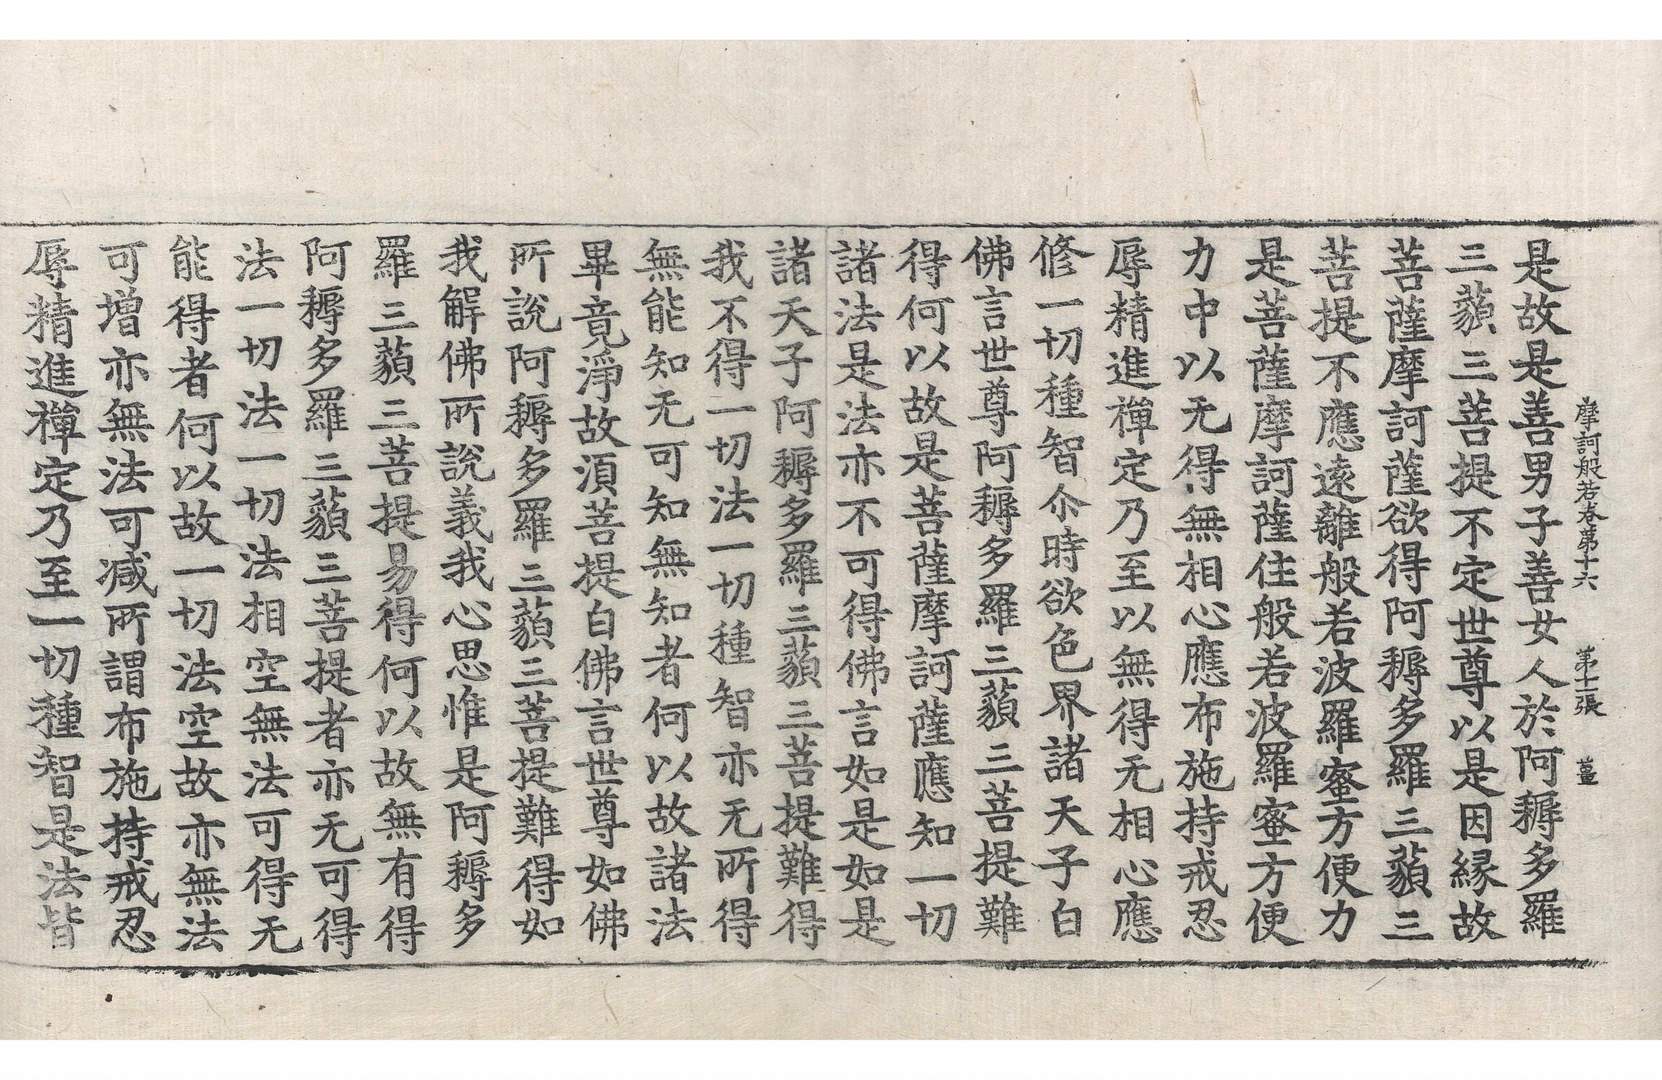 摩訶般若卷第十六　第十一張　薑
是故是善男子善女人於阿耨多羅
三藐三菩提不定世尊以是因緣故
菩薩摩訶薩欲得阿耨多羅三藐三
菩提不應遠離般若波羅蜜方便力
是菩薩摩訶薩住般若波羅蜜方便
力中以无得無相心應布施持戒忍
辱精進禪定乃至以無得无相心應
修一切種智尒時欲色界諸天子白
佛言世尊阿耨多羅三藐三菩提難
得何以故是菩薩摩訶薩應知一切
諸法是法亦不可得佛言如是如是
諸天子阿耨多羅三藐三菩提難得
我不得一切法一切種智亦无所得
無能知无可知無知者何以故諸法
畢竟淨故湏菩提白佛言世尊如佛
所說阿耨多羅三藐三菩提難得如
我解佛所說義我心思惟是阿耨多
羅三藐三菩提易得何以故無有得
阿耨多羅三藐三菩提者亦无可得
法一切法一切法相空無法可得无
能得者何以故一切法空故亦無法
可增亦無法可減所謂布施持戒忍
辱精進禪定乃至一切種智是法皆